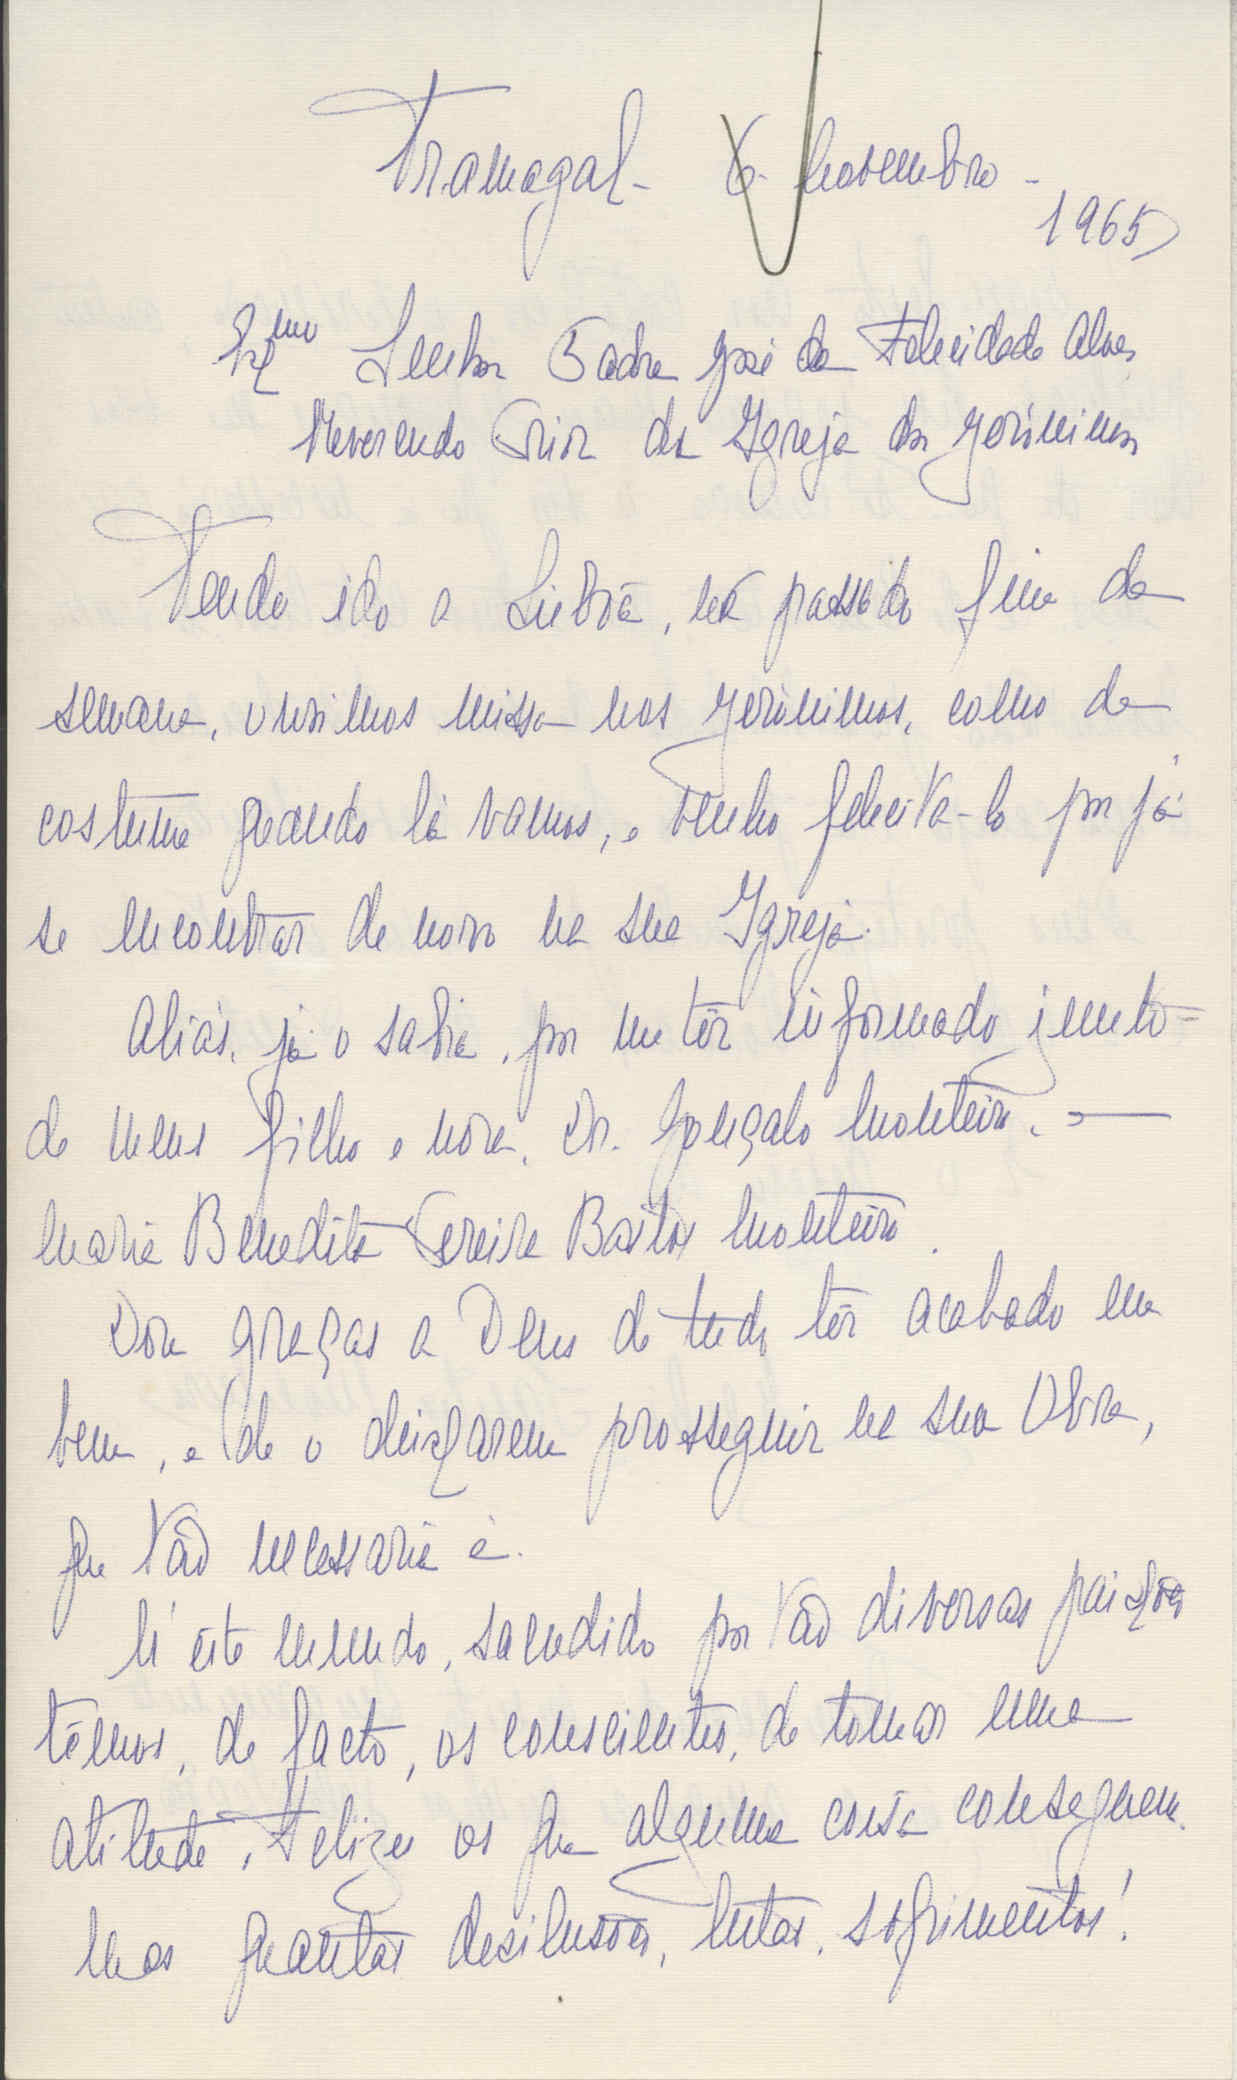 Tramagal - 6 - Novembro -
1965
Exmo Senhor Padre José da Felicidade Alves
Reverendo Prior da Igreja dos Jerónimos
Tendo ido a Lisboa, no passado fim de
semana, ouvimos missa nos Jerónimos, como de
costume quando lá vamos, e venho felicita-lo por já
se encontrar de novo na sua Igreja.
Aliás, já o sabia, por me têr informado junto-
de meus filho e nora, Dr. Gonçalo Monteiro, e
Maria Benedita Pereira Bastos Monteiro.
Dou graças a Deus de tudo têr acabado em
bem, e de o deixarem prosseguir na sua Obra,
que tão necessaria é.
N'êste mundo, sacudido por tão diversas paixões
têmos, de facto, os conscientes, de tomar uma
atitude, Felizes os que alguma coisa conseguem.
Mas quantas desilusões, lutas, sofrimentos!